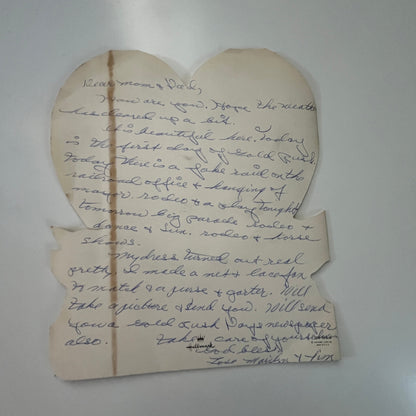 Dear mom & Dad,
How are you. Hope the weather
has cleared up a bit.
It is beautiful here. Today
is the first day of Gold Rush.
Today there is a fake raid on the
railroad office & hanging of
mayor, rodeo & a play tonight
tomorrow big parade rodeo &
dance & Sun. rodeo & horse
shows.
My dress turned out real
pretty. I made a net & lace fan
to match & a purse & garter. Will
take a picture & send you. Will send
you a Gold Rush Days newspaper
also. take care of yourselves
God bless
Love Marilyn &
Hallmark